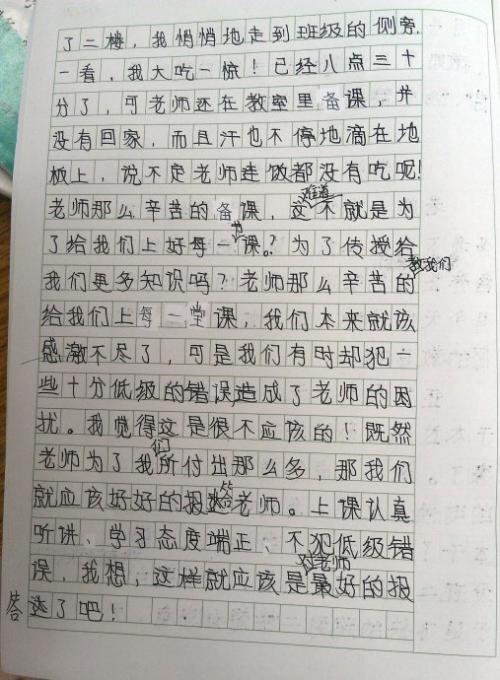 了二楼，我悄悄地走到班级的侧旁，
一看，我大吃一惊！已经八点三十
分了，可老师还在教室里备课，并
没有回家，而且汗也不停地滴在地
板上，说不定老师连饭都没有吃呢！
老师那么辛苦的备课，这难道不就是为
了给我们上好每一节课？为了传授给教我们
我们更多知识吗？老师那么辛苦的
给我们上每一堂课，我们本来就该
感激不尽了，可是我们有时却犯一
些十分低级的错误，造成了老师的困
扰。我觉得这是很不应该的！既然
老师为了我们所付出那么多，那我们
就应该好好的报答老师。上课认真
听讲、学习态度端正、不犯低级错
误，我想，这样就应该是对老师最好的报
答了吧！